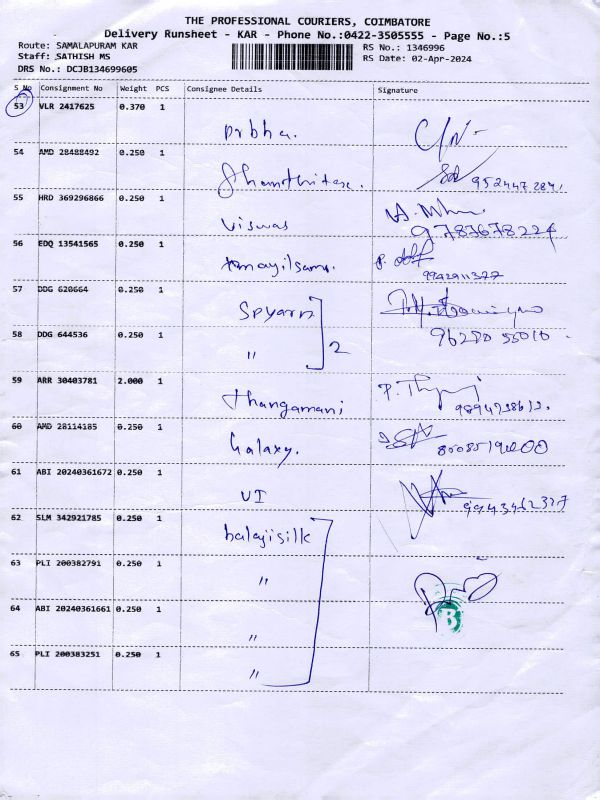 THE PROFESSIONAL COURIERS, COIMBATORE
Delivery Runsheet - KAR - Phone No.:0422-3505555 - Page No.:5
Route: SAMALAPURAM KAR RS No.: 1346996
Staff: SATHISH MS RS Date: 02-Apr-2024
DRS No.: DCJB134699605
S No Consignment No Weight PCS Consignee Details Signature
53 VLR 2417625 0.370 1
Prbha.
54 AMD 28488492 0.250 1
55 HRD 369296866 0.250 1
Viswas 9787678224
56 EDQ 13541565 0.250 1
57 DDG 620664 0.250 1
Spyarn
58 DDG 644536 0.250 1
" 2
59 ARR 30403781 2.000 1
thangamani
60 AMD 28114185 0.250 1
Galaxy.
61 ABI 20240361672 0.250 1
VI
62 SLM 342921785 0.250 1
balajisilk
63 PLI 200382791 0.250 1
"
64 ABI 20240361661 0.250 1
"
B
65 PLI 200383251 0.250 1
"